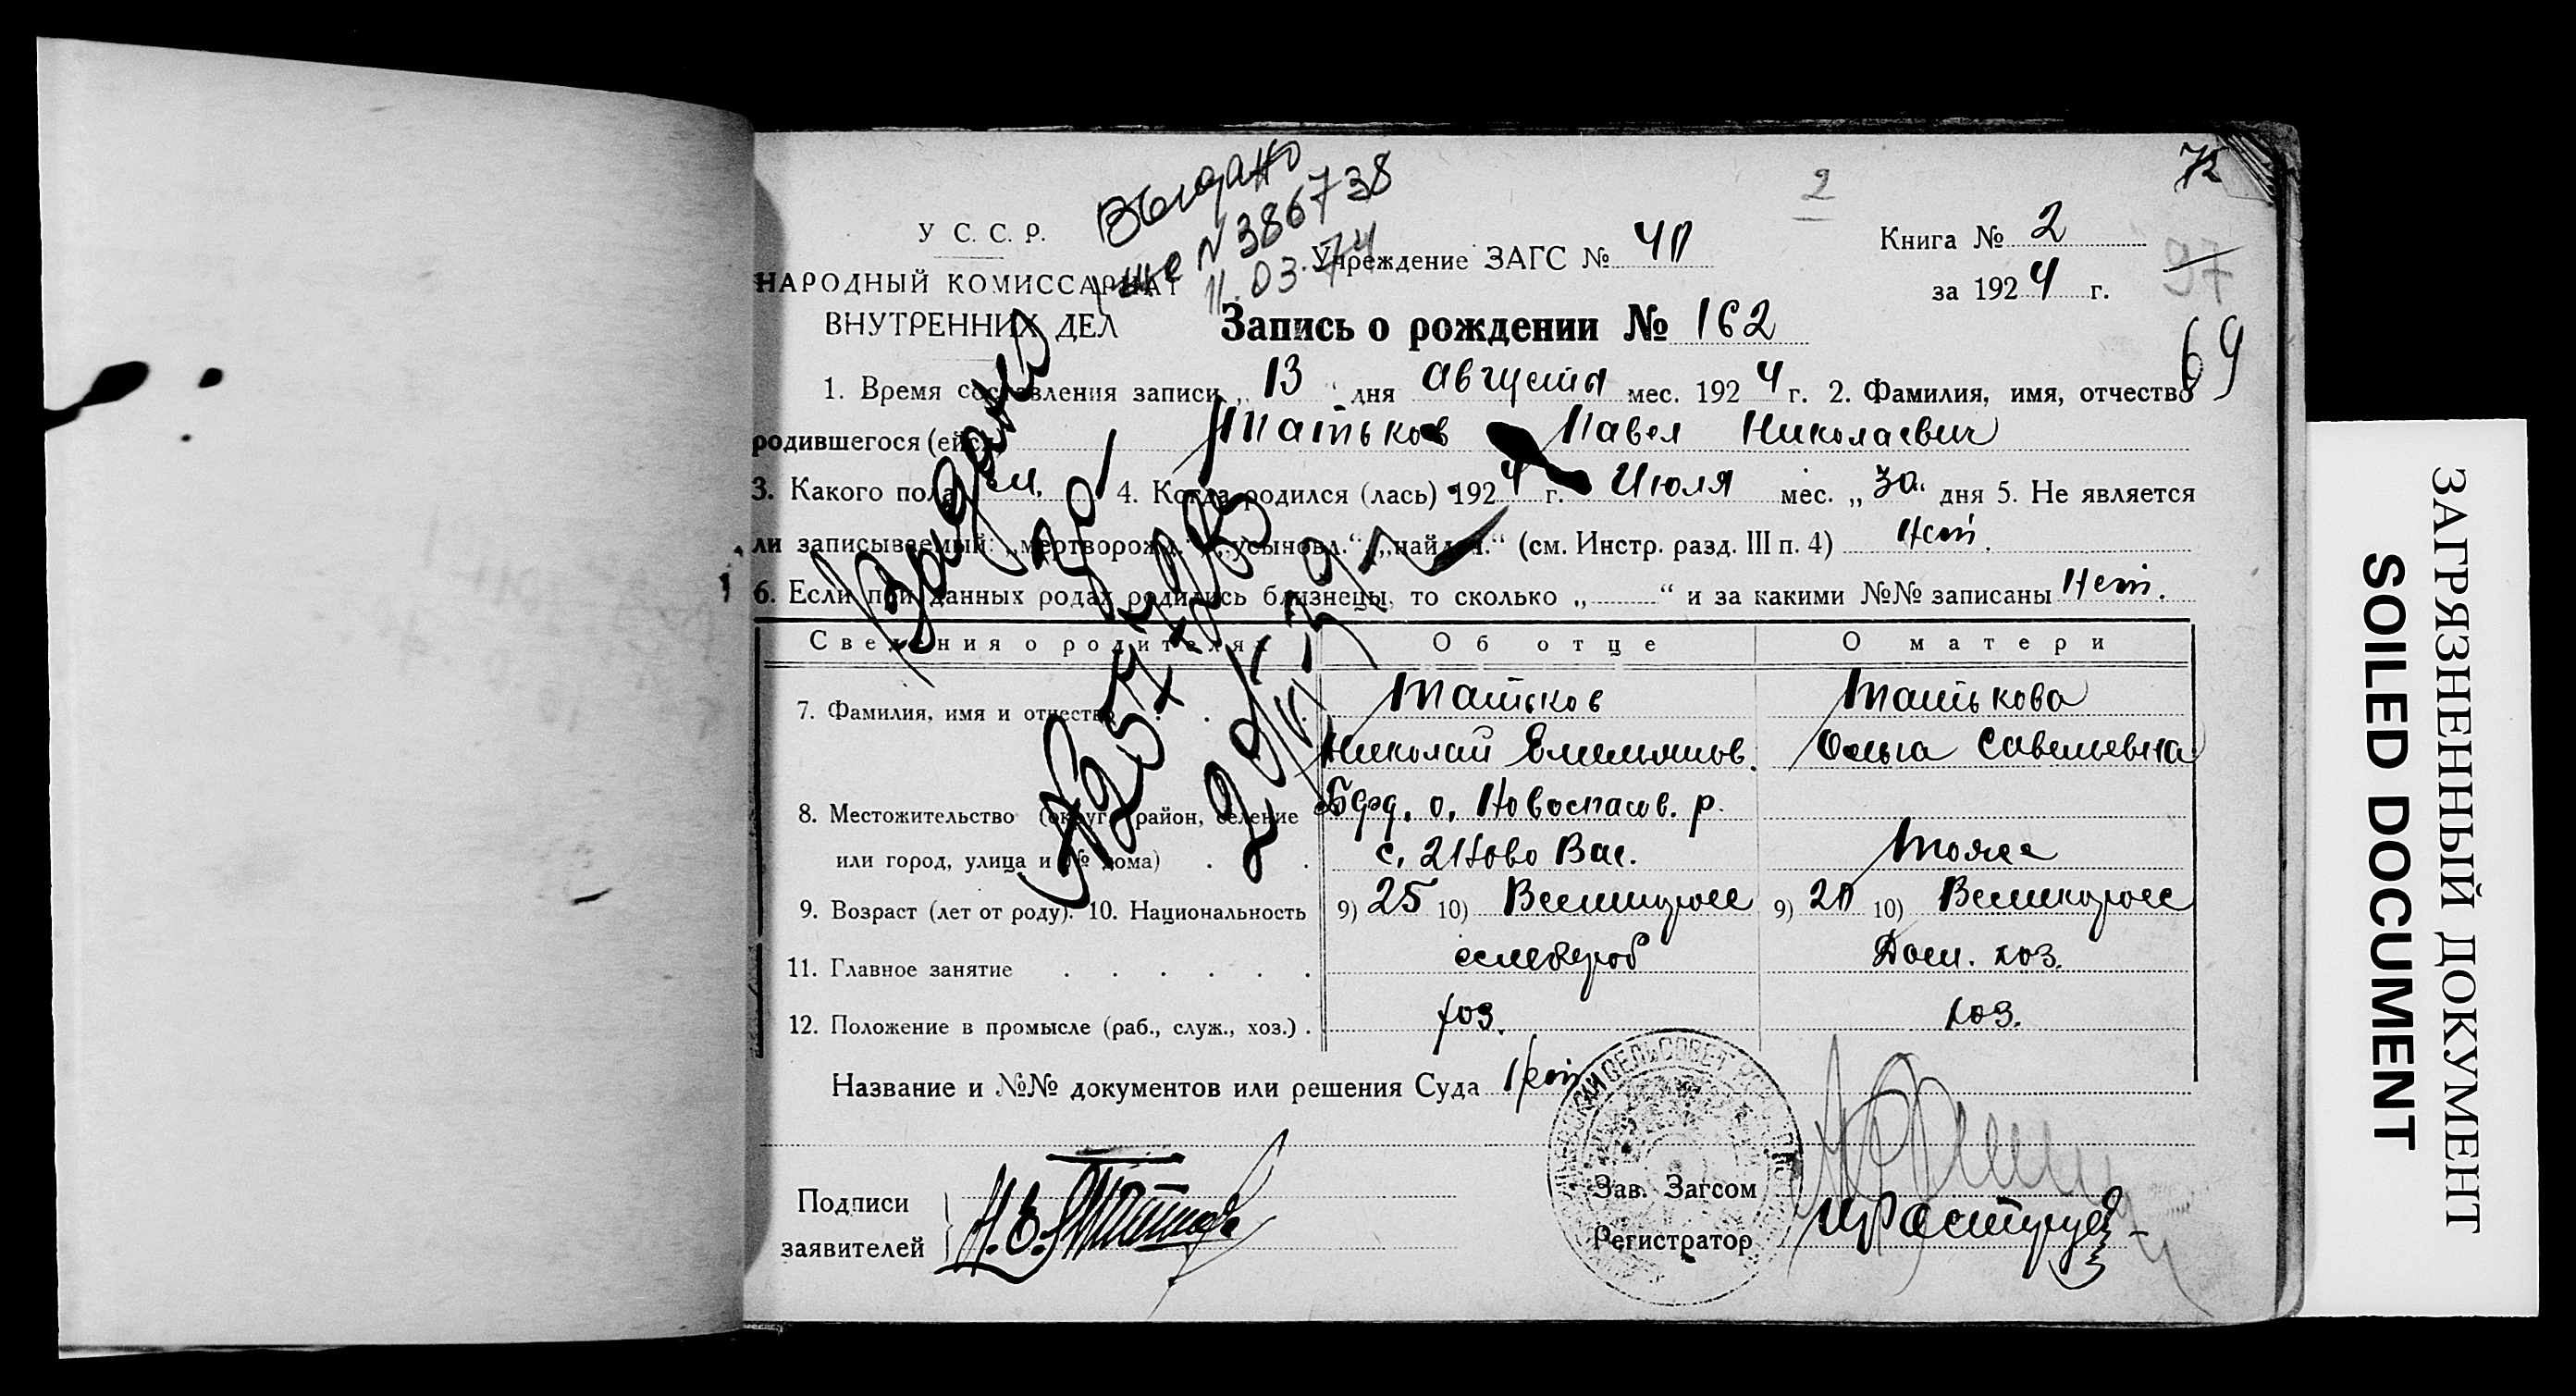 72
2
У С. С. Р.
НАРОДНЫЙ КОМИССАРИАТ
ВНУТРЕННИХ ДЕЛ
Выдано
N 386738
11.03.74
Учреждение ЗАГС №
Книга № 2
за 1924 г.
97
69
Запись о рождении № 162
1. Время составления записи „ 13 “ дня августа мес. 1924 г. 2. Фамилия, имя, отчество
родившегося (ейся) Татьков Павел Николаевич
3. Какого пола м. 4. Когда родился (лась) 1924 г. Июля мес. „ 30 “ дня 5. Не является
ли записываемый: „мертворожд.“, „усыновл.“, „найден.“ (см. Инстр. разд. III п. 4) Нет.
6. Если при данных родах родились близнецы, то сколько „ “ и за какими №№ записаны Нет.
Выдано
Сведения о родителях Об отце О матери
7. Фамилия, имя и отчество Татьков Татькова
Николай Емельянов. Ольга Савельевна
8. Местожительство (округ, район, селение Бердд. о. Новоспасов. р.
или город, улица и № дома) с. Ново Вас. Тоже
9. Возраст (лет от роду). 10. Национальность 9) 25 10) Великоросс 9) 20 10) Великоросс
11. Главное занятие хлебороб Дом. хоз.
12. Положение в промысле (раб., служ., хоз.) хоз. хоз.
Название и №№ документов или решения Суда Нет
Подписи
заявителей Н. Е. Татьков
Зав. Загсом
Регистратор
ЗАГРЯЗНЕННЫЙ ДОКУМЕНТ
SOILED DOCUMENT